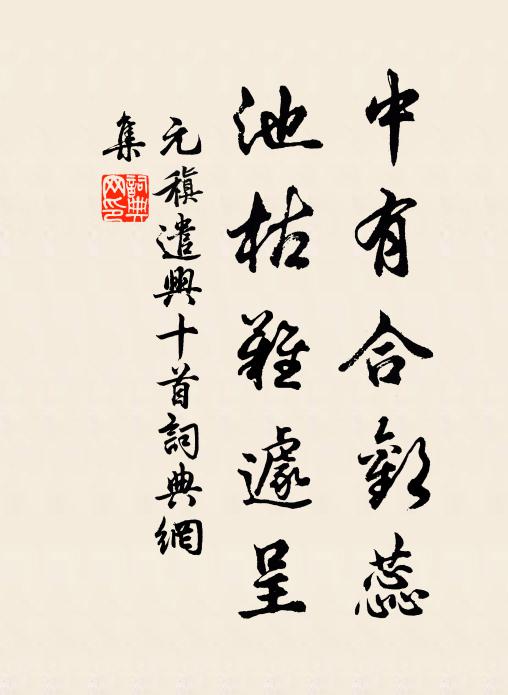 中有合歡蕊
池枯難遽呈
元稹遣興十首詞典網
集
詞典網印